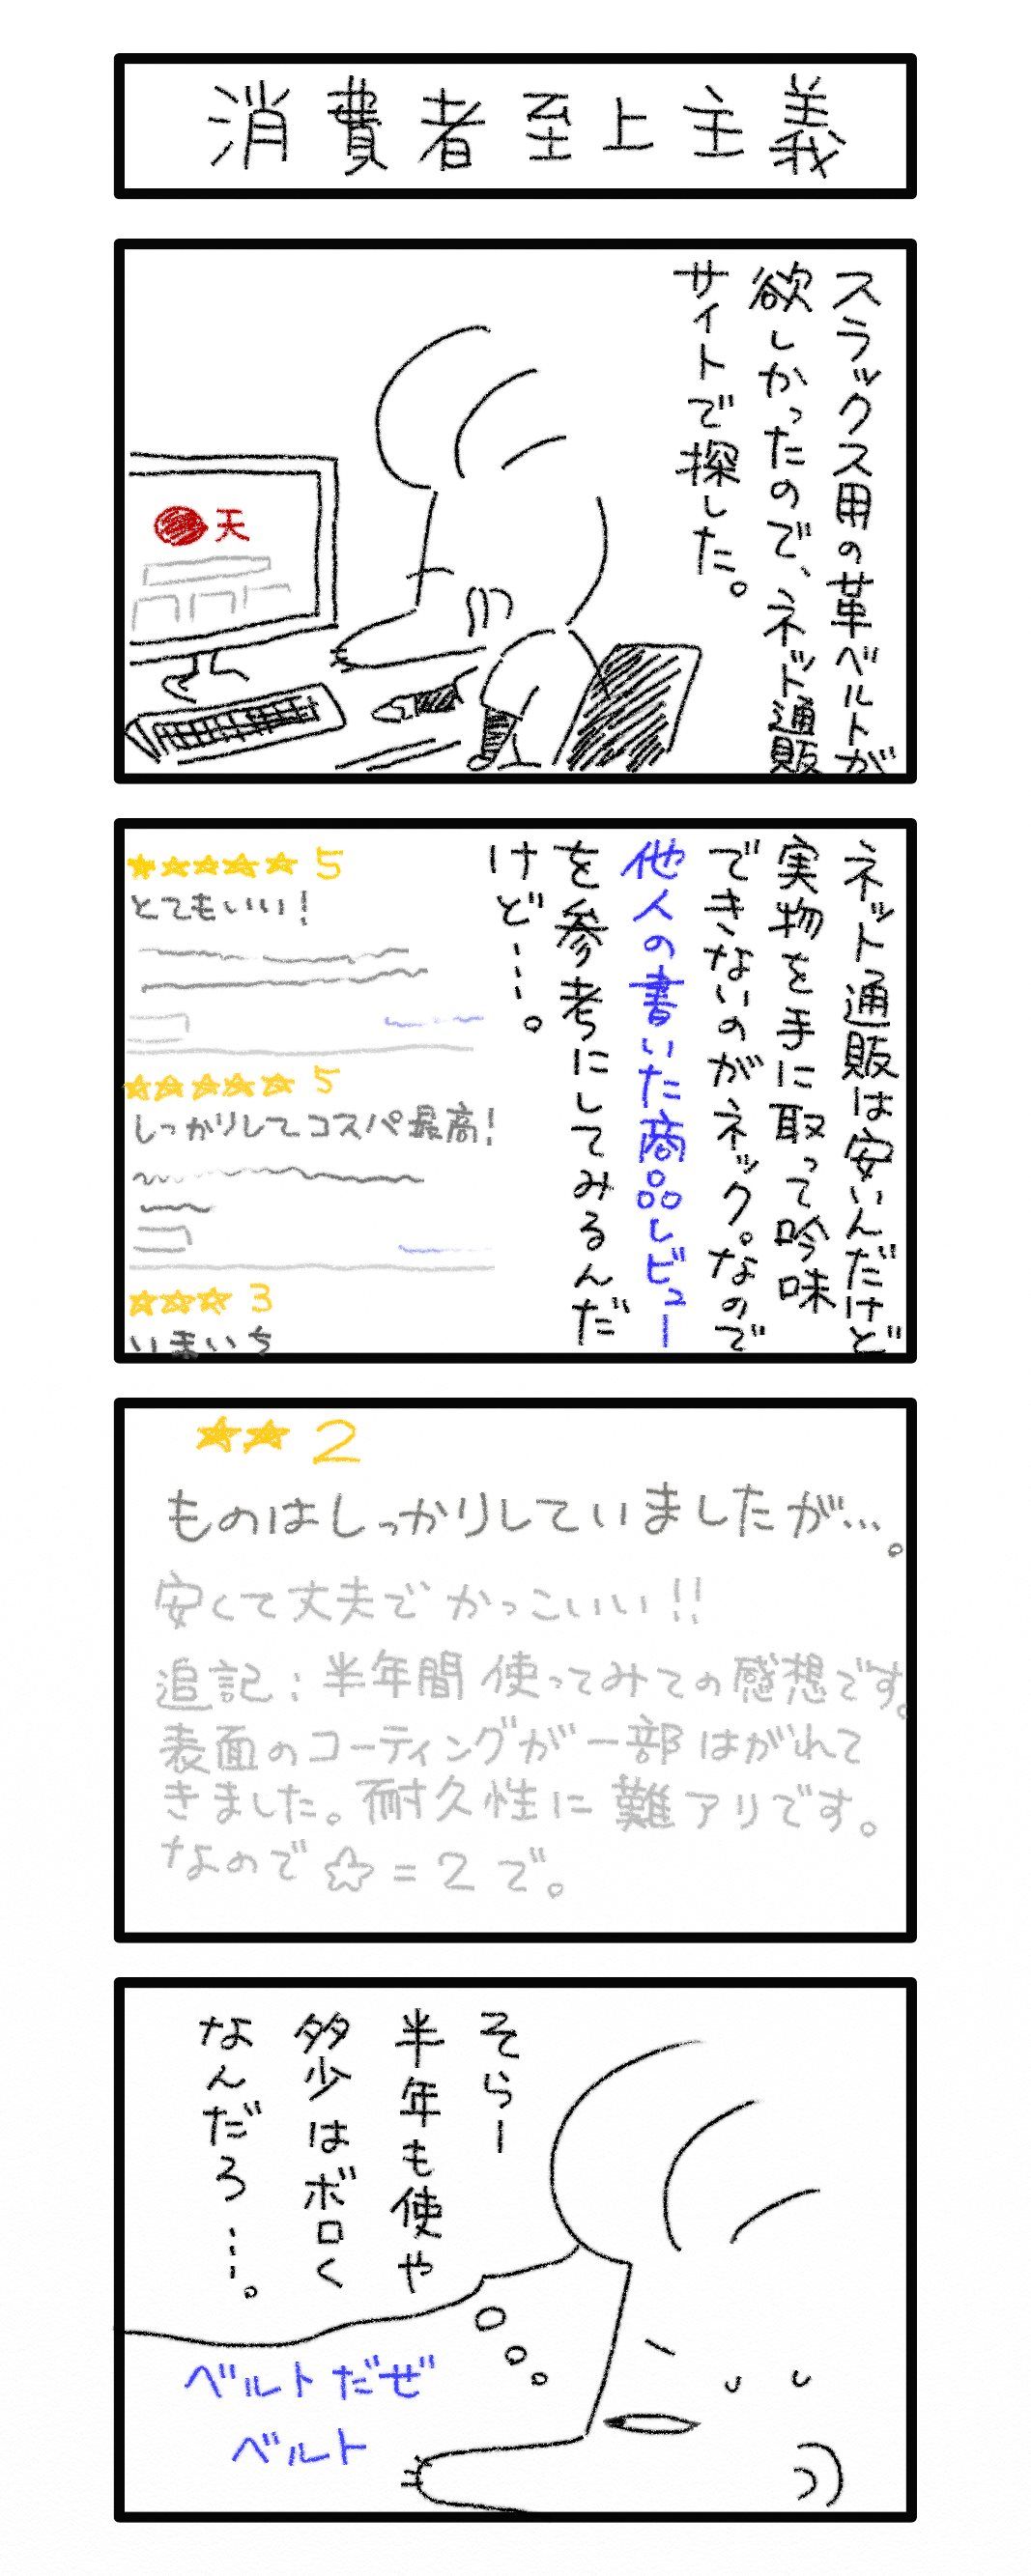 消費者至上主義
スラックス用の革ベルトが
欲しかったので、ネット通販
サイトで探した。
天
ネット通販は安いんだけど
実物を手に取って吟味
できないのがネック。なので
他人の書いた商品レビュー
を参考にしてみるんだ
けど…。
★★★★★ 5
とてもいい!
★★★★★ 5
しっかりしてコスパ最高!
★★★ 3
いまいち
★★ 2
ものはしっかりしていましたが…。
安くて丈夫でかっこいい!!
追記:半年間使ってみての感想です。
表面のコーティングが一部はがれて
きました。耐久性に難アリです。
なので☆=2で。
そらー
半年も使や
多少はボロく
なんだろ…。
ベルトだぜ
ベルト